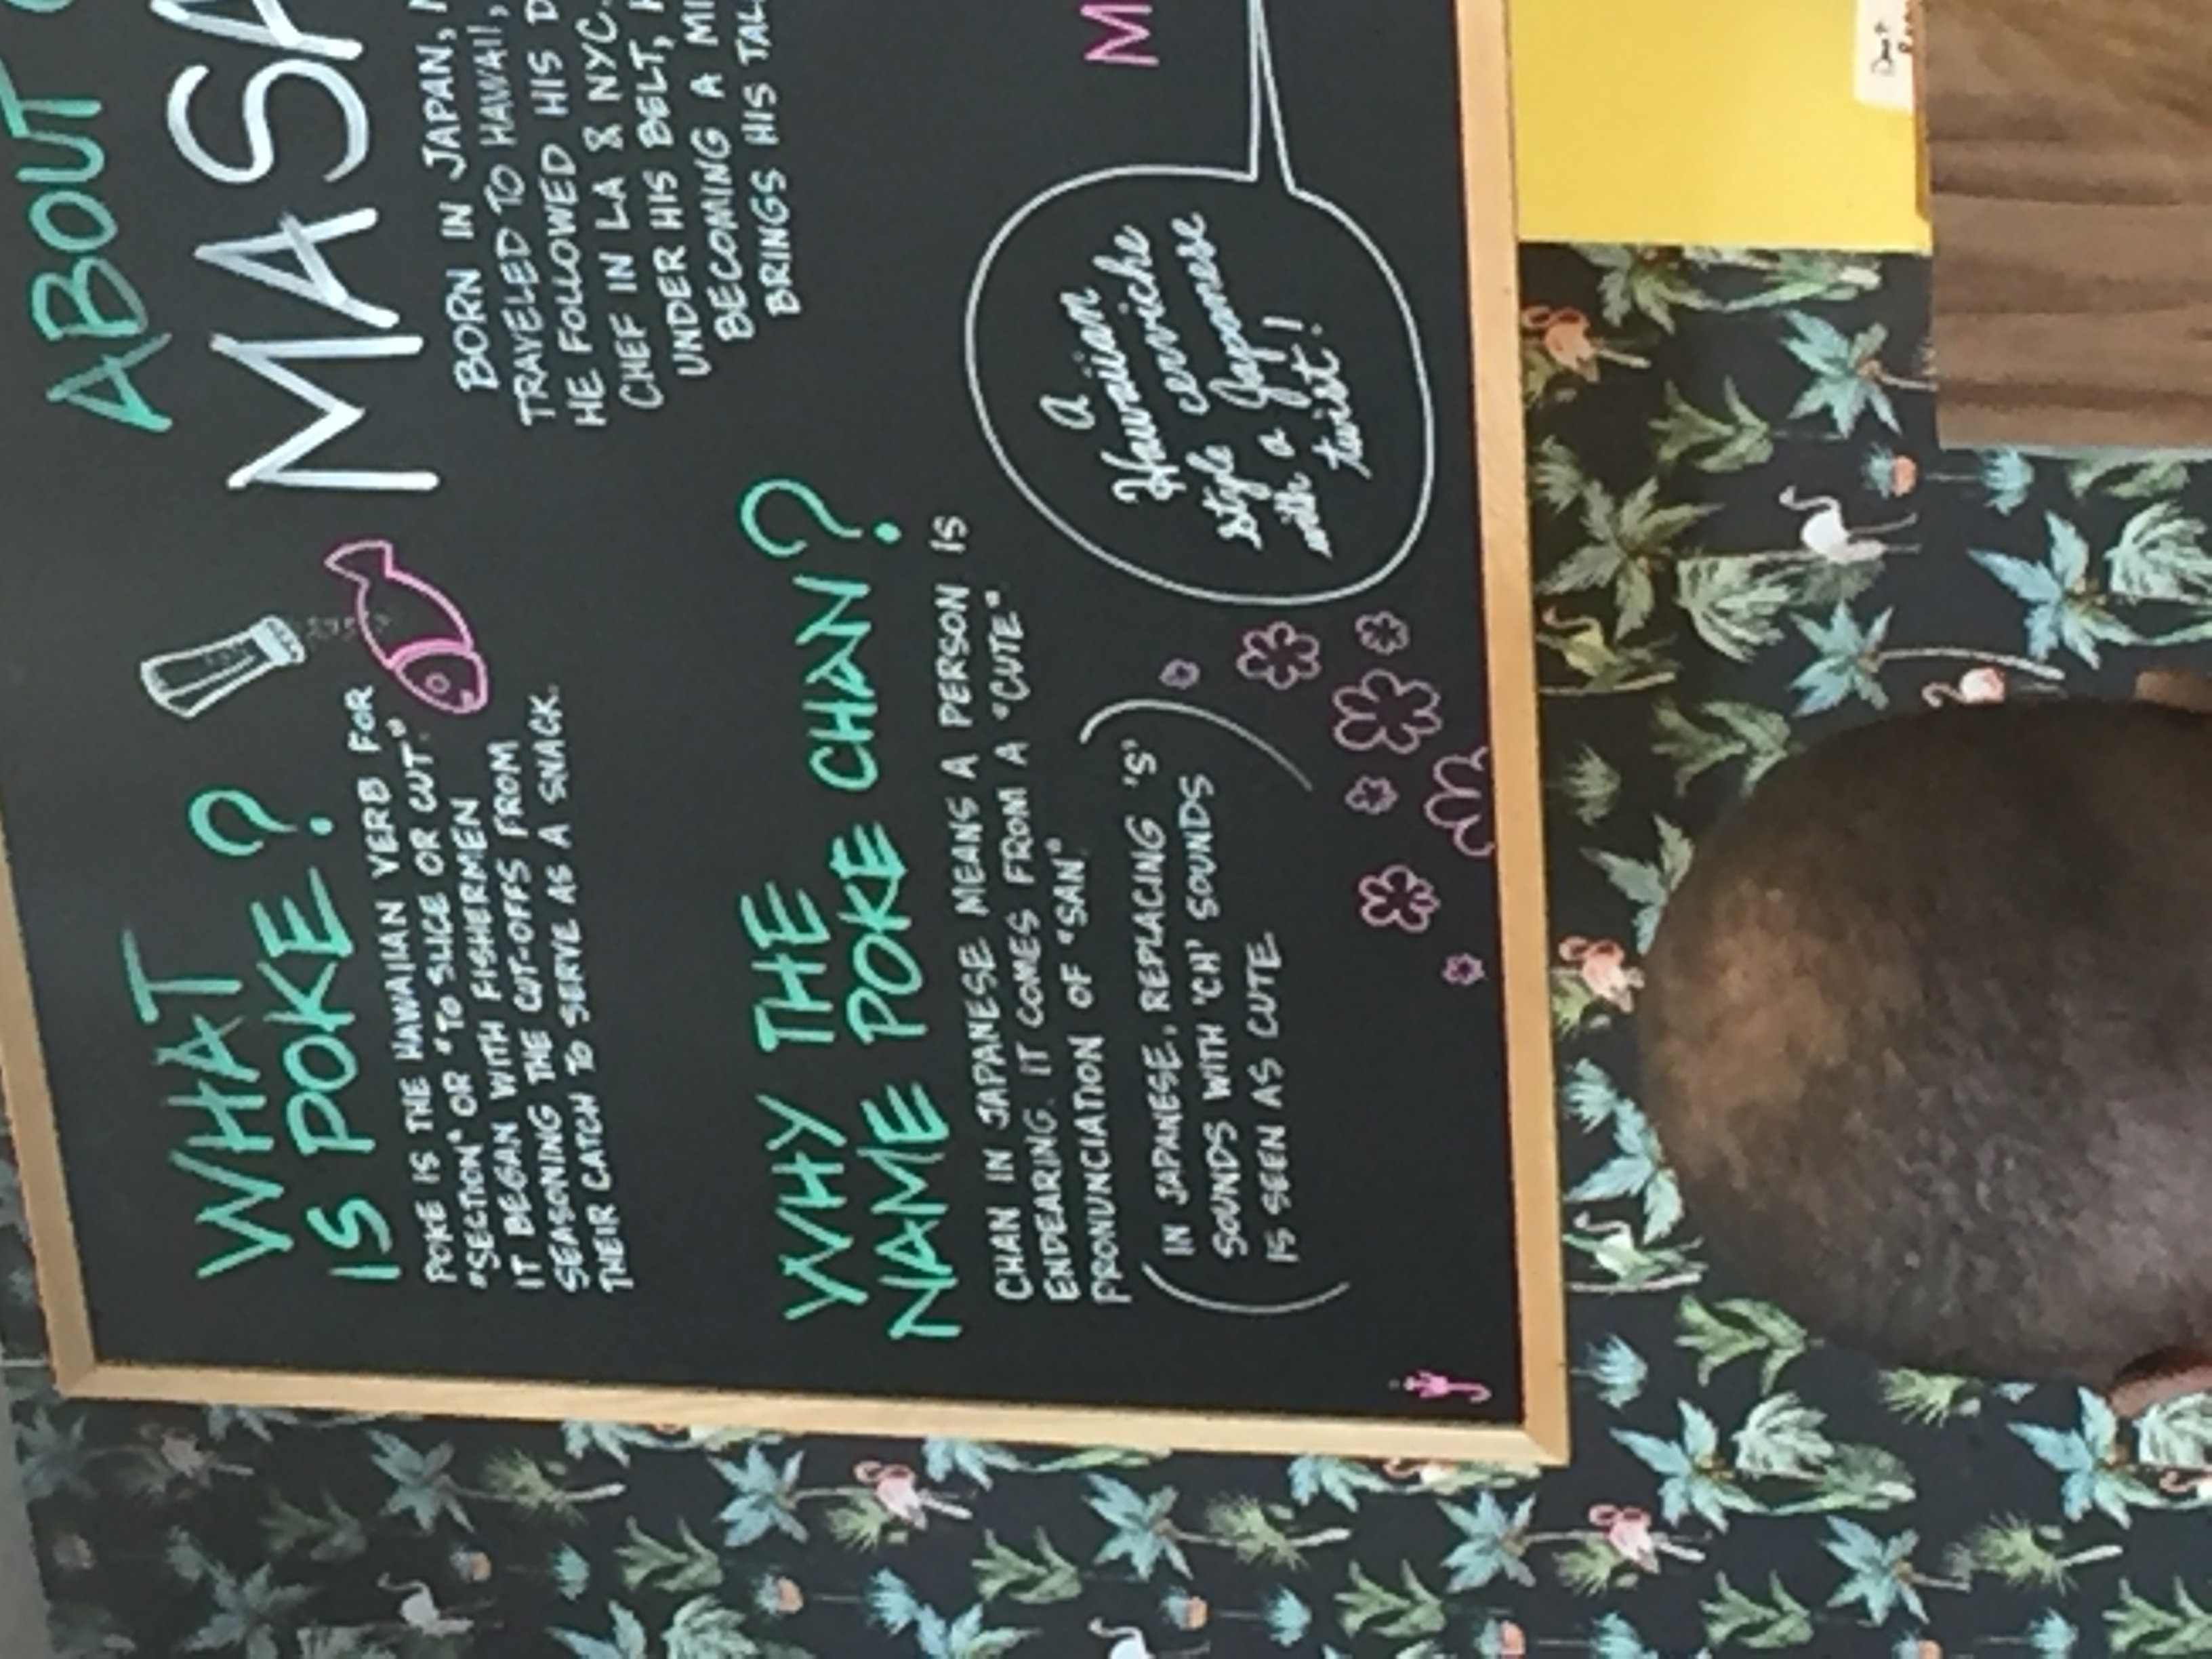 WHAT
IS POKE?
POKE IS THE HAWAIIAN VERB FOR
"SECTION" OR "TO SLICE OR CUT."
IT BEGAN WITH FISHERMEN
SEASONING THE CUT-OFFS FROM
THEIR CATCH TO SERVE AS A SNACK.
WHY THE
NAME POKE CHAN?
CHAN IN JAPANESE MEANS A PERSON IS
ENDEARING. IT COMES FROM A "CUTE"
PRONUNCIATION OF "SAN"
(IN JAPANESE, REPLACING 'S'
SOUNDS WITH 'CH' SOUNDS
IS SEEN AS CUTE)
ABOUT
MASA
BORN IN JAPAN,
TRAVELED TO HAWAII,
HE FOLLOWED HIS D
CHEF IN LA & NYC.
UNDER HIS BELT, H
BECOMING A MI
BRINGS HIS TAL
A
Hawaiian
style cerviche
with a Japanese
twist!
M